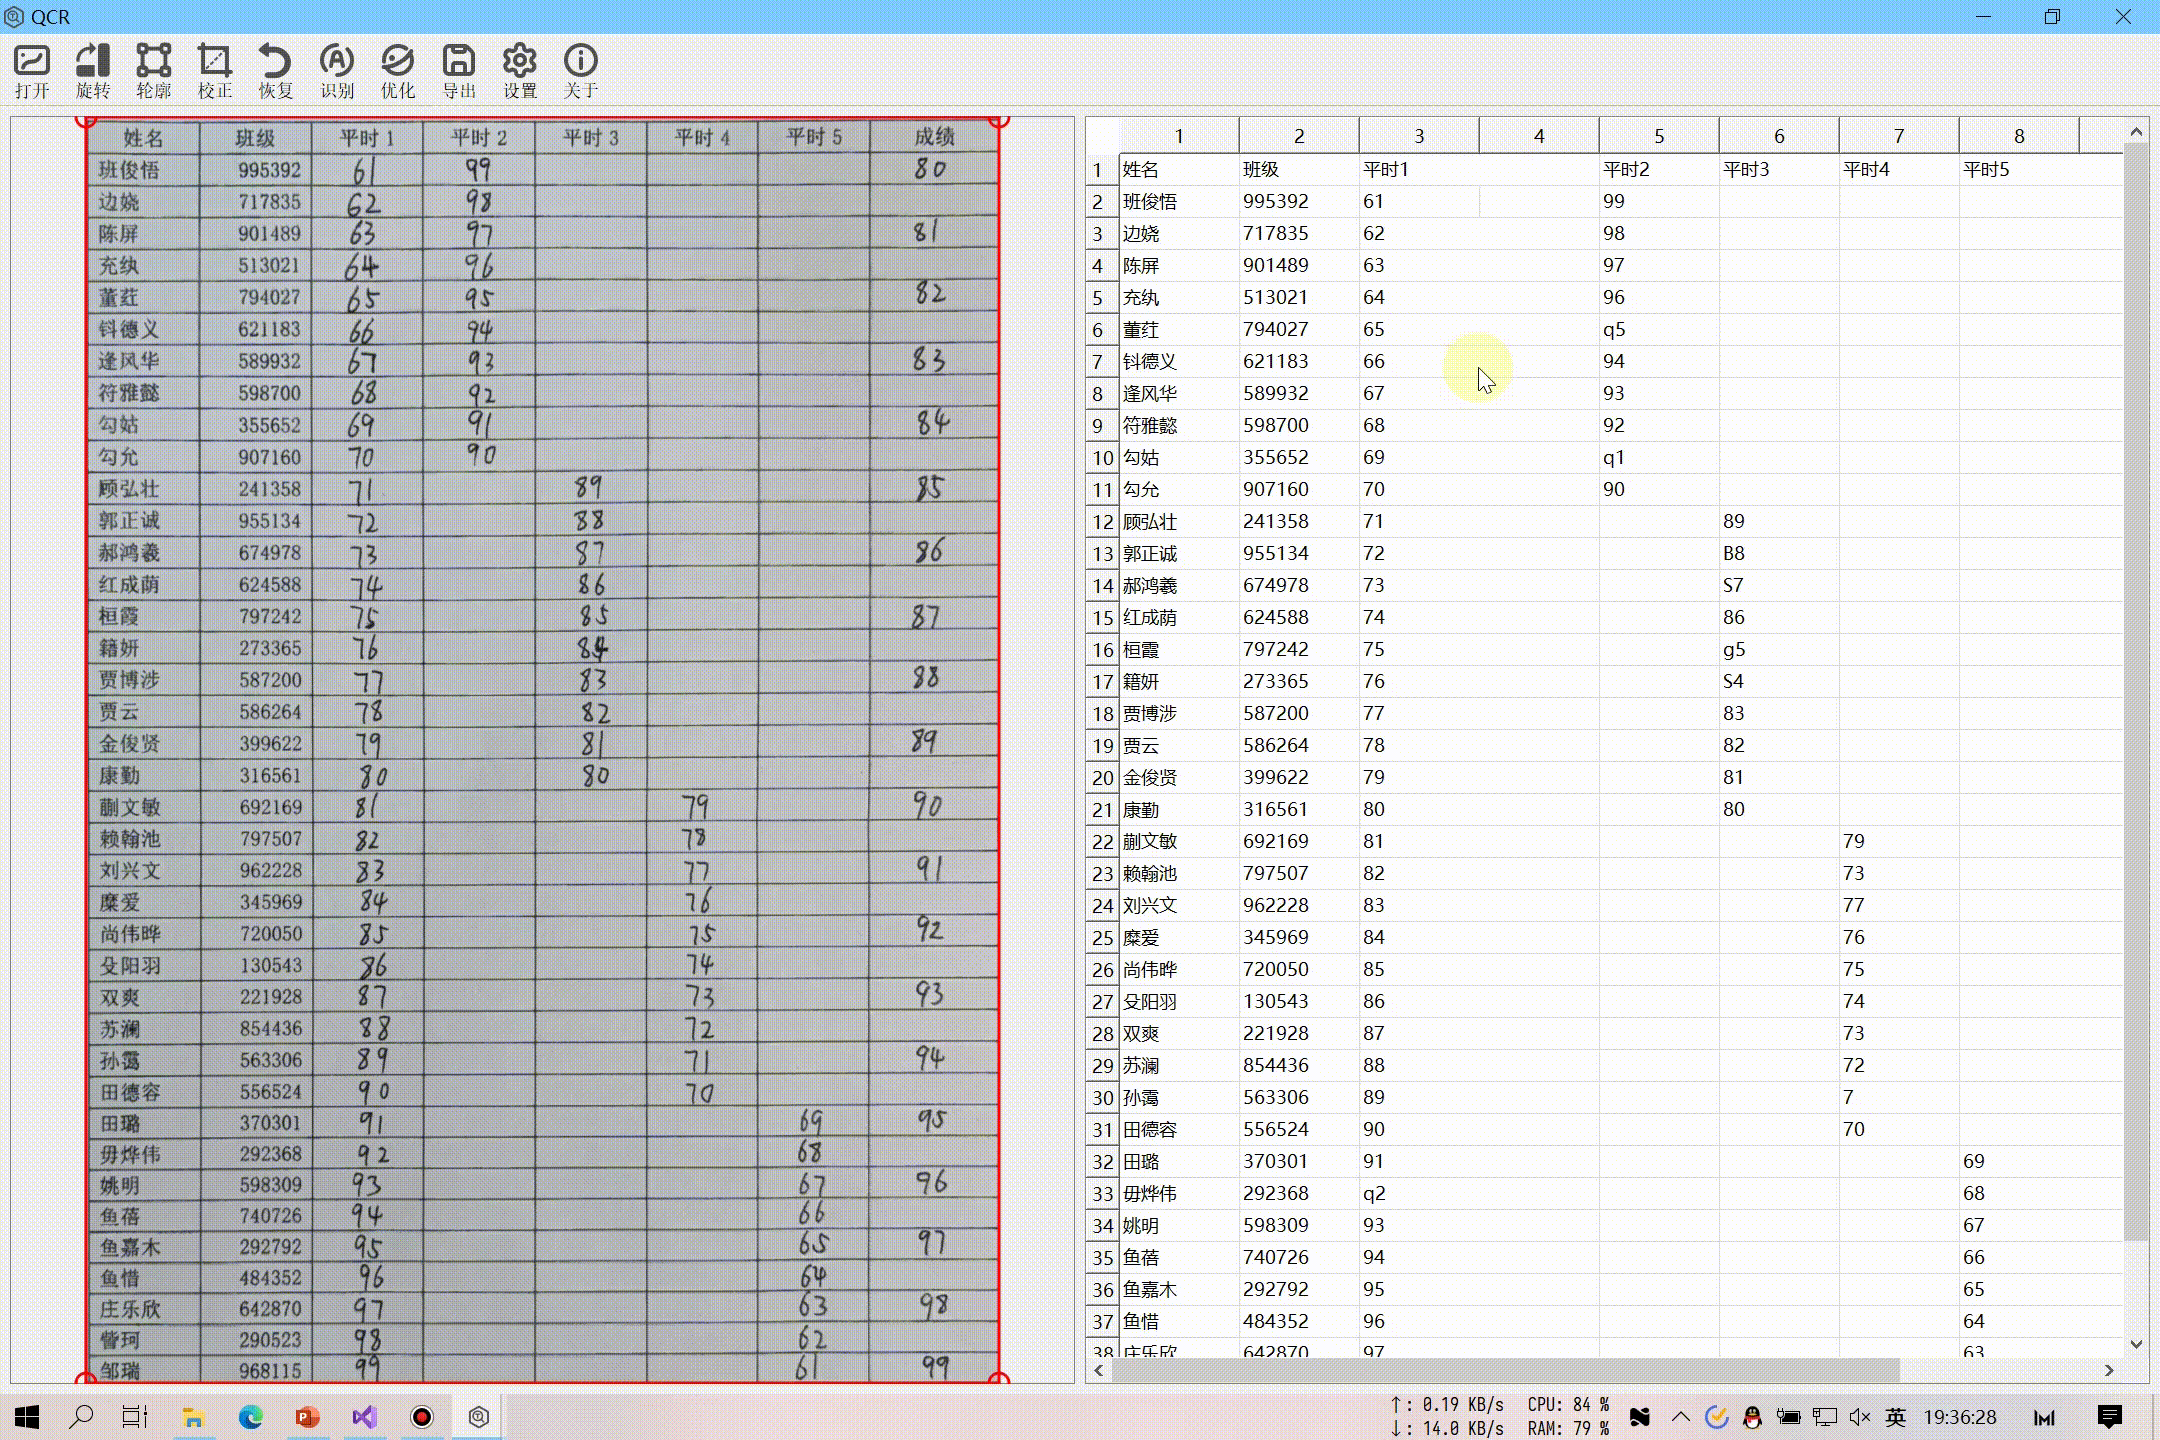 QCR
打开 旋转 轮廓 校正 恢复 识别 优化 导出 设置 关于
姓名 班级 平时1 平时2 平时3 平时4 平时5 成绩
班俊悟 995392 61 99 80
边娆 717835 62 98
陈屏 901489 63 97 81
充纨 513021 64 96
董荭 794027 65 95 82
钭德义 621183 66 94
逄风华 589932 67 93 83
符雅懿 598700 68 92
勾姑 355652 69 91 84
勾允 907160 70 90
顾弘壮 241358 71 89 85
郭正诚 955134 72 88
郝鸿羲 674978 73 87 86
红成荫 624588 74 86
桓霞 797242 75 85 87
籍妍 273365 76 84
贾博涉 587200 77 83 88
贾云 586264 78 82
金俊贤 399622 79 81 89
康勤 316561 80 80
蒯文敏 692169 81 79 90
赖翰池 797507 82 78
刘兴文 962228 83 77 91
糜爱 345969 84 76
尚伟晔 720050 85 75 92
殳阳羽 130543 86 74
双爽 221928 87 73 93
苏澜 854436 88 72
孙霭 563306 89 71 94
田德容 556524 90 70
田璐 370301 91 69 95
毋烨伟 292368 92 68
姚明 598309 93 67 96
鱼蓓 740726 94 66
鱼嘉木 292792 95 65 97
鱼惜 484352 96 64
庄乐欣 642870 97 63 98
訾珂 290523 98 62
邹瑞 968115 99 61 99
1 2 3 4 5 6 7 8
1 姓名 班级 平时1 平时2 平时3 平时4 平时5
2 班俊悟 995392 61 99
3 边娆 717835 62 98
4 陈屏 901489 63 97
5 充纨 513021 64 96
6 董荭 794027 65 q5
7 钭德义 621183 66 94
8 逄风华 589932 67 93
9 符雅懿 598700 68 92
10 勾姑 355652 69 q1
11 勾允 907160 70 90
12 顾弘壮 241358 71 89
13 郭正诚 955134 72 B8
14 郝鸿羲 674978 73 S7
15 红成荫 624588 74 86
16 桓霞 797242 75 g5
17 籍妍 273365 76 S4
18 贾博涉 587200 77 83
19 贾云 586264 78 82
20 金俊贤 399622 79 81
21 康勤 316561 80 80
22 蒯文敏 692169 81 79
23 赖翰池 797507 82 73
24 刘兴文 962228 83 77
25 糜爱 345969 84 76
26 尚伟晔 720050 85 75
27 殳阳羽 130543 86 74
28 双爽 221928 87 73
29 苏澜 854436 88 72
30 孙霭 563306 89 7
31 田德容 556524 90 70
32 田璐 370301 91 69
33 毋烨伟 292368 q2 68
34 姚明 598309 93 67
35 鱼蓓 740726 94 66
36 鱼嘉木 292792 95 65
37 鱼惜 484352 96 64
38 庄乐欣 642870 97 63
↑: 0.19 KB/s CPU: 84 %
↓: 14.0 KB/s RAM: 79 %
英 19:36:28